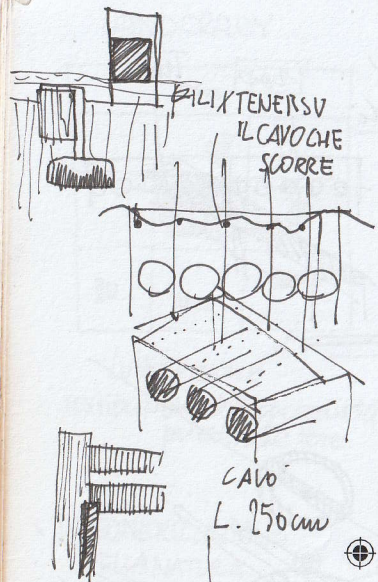 FILI X TENER SU
IL CAVO CHE
SCORRE
CAVO
L. 250 cm